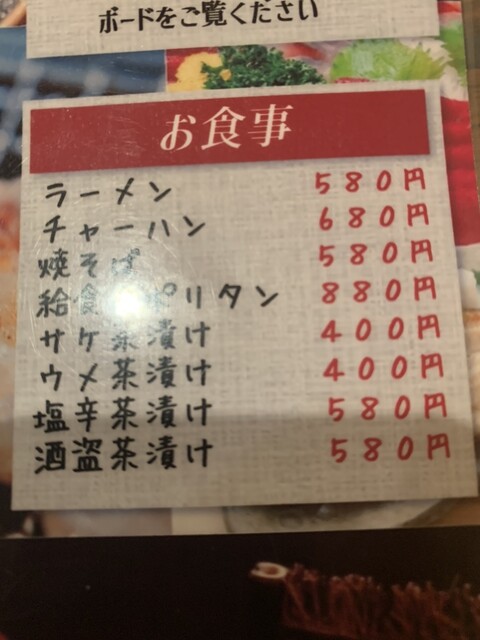 ボードをご覧ください
お食事
ラーメン 580円
チャーハン 680円
焼そば 580円
給食ナポリタン 880円
サケ茶漬け 400円
ウメ茶漬け 400円
塩辛茶漬け 580円
酒盗茶漬け 580円